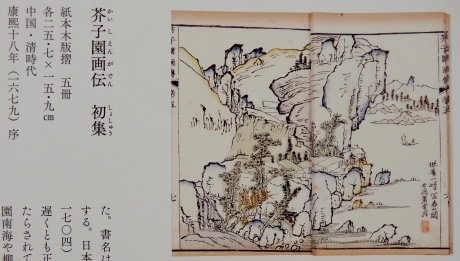 芥子園画伝　初集
かいしえんがでん　しょしゅう
紙本木版摺　五冊
各二五・七×一五・九㎝
中国・清時代
康熙十八年（一六七九）序
た。書名は
一七〇四）
する。日本
遅くとも正
たらされて
園南海や柳